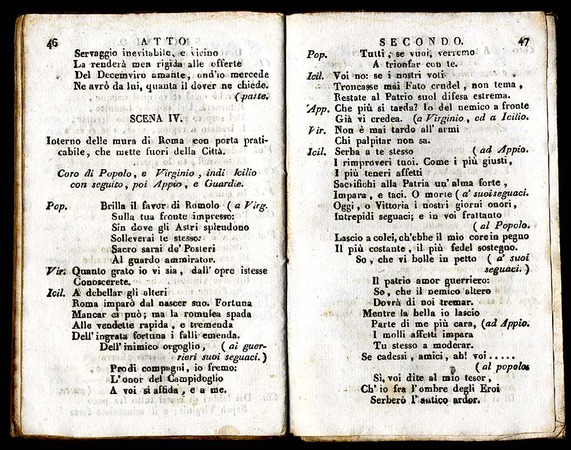 46 ATTO
Servaggio inevitabile, e vicino
La renderà men rigida alle offerte
Del Decemviro amante, ond'io mercede
Ne avrò da lui, quanta il dover ne chiede.
( parte.
SCENA IV.
Interno delle mura di Roma con porta prati-
cabile, che mette fuori della Città.
Coro di Popolo, e Virginio, indi Icilio
con seguito, poi Appio, e Guardie.
Pop. Brilla il favor di Romolo ( a Virg.
Sulla tua fronte impresso:
Sin dove gli Astri splendono
Solleverai te stesso:
Sacro sarai de' Posteri
Al guardo ammirator.
Vir. Quanto grato io vi sia, dall' opre istesse
Conoscerete.
Icil. A debellar gli alteri
Roma imparò dal nascer suo. Fortuna
Mancar ci può; ma la romulea spada
Alle vendette rapida, e tremenda
Dell' ingrata fortuna i falli emenda.
Dell' inimico orgoglio, ( ai guer-
rieri suoi seguaci. )
Prodi compagni, io fremo:
L' onor del Campidoglio
A voi si affida, e a me.
SECONDO. 47
Pop. Tutti, se vuoi, verremo
A trionfar con te.
Icil. Voi no: se i nostri voti
Troncasse mai Fato crudel, non tema,
Restate al Patrio suol difesa estrema.
App. Che più si tarda? Io del nemico a fronte
Già vi credea. (a Virginio, ed a Icilio.
Vir. Non è mai tardo all' armi
Chi palpitar non sa.
Icil. Serba a te stesso ( ad Appio.
I rimproveri tuoi. Come i più giusti,
I più teneri affetti
Sacrifichi alla Patria un' alma forte,
Impara, e taci. O morte ( a' suoi seguaci.
Oggi, o Vittoria i nostri giorni onori,
Intrepidi seguaci; e in voi frattanto
( al Popolo.
Lascio a colei, ch'ebbe il mio core in pegno
Il più costante, il più fedel sostegno.
So, che vi bolle in petto ( a' suoi
seguaci. )
Il patrio amor guerriero:
So, che il nemico altero
Dovrà di noi tremar.
Mentre la bella io lascio
Parte di me più cara, (ad Appio.
I molli affetti impara
Tu stesso a moderar.
Se cadessi, amici, ah! voi .....
( al popolo
Sì, voi dite al mio tesor,
Ch' io fra l' ombre degli Eroi
Serberò l' antico ardor.